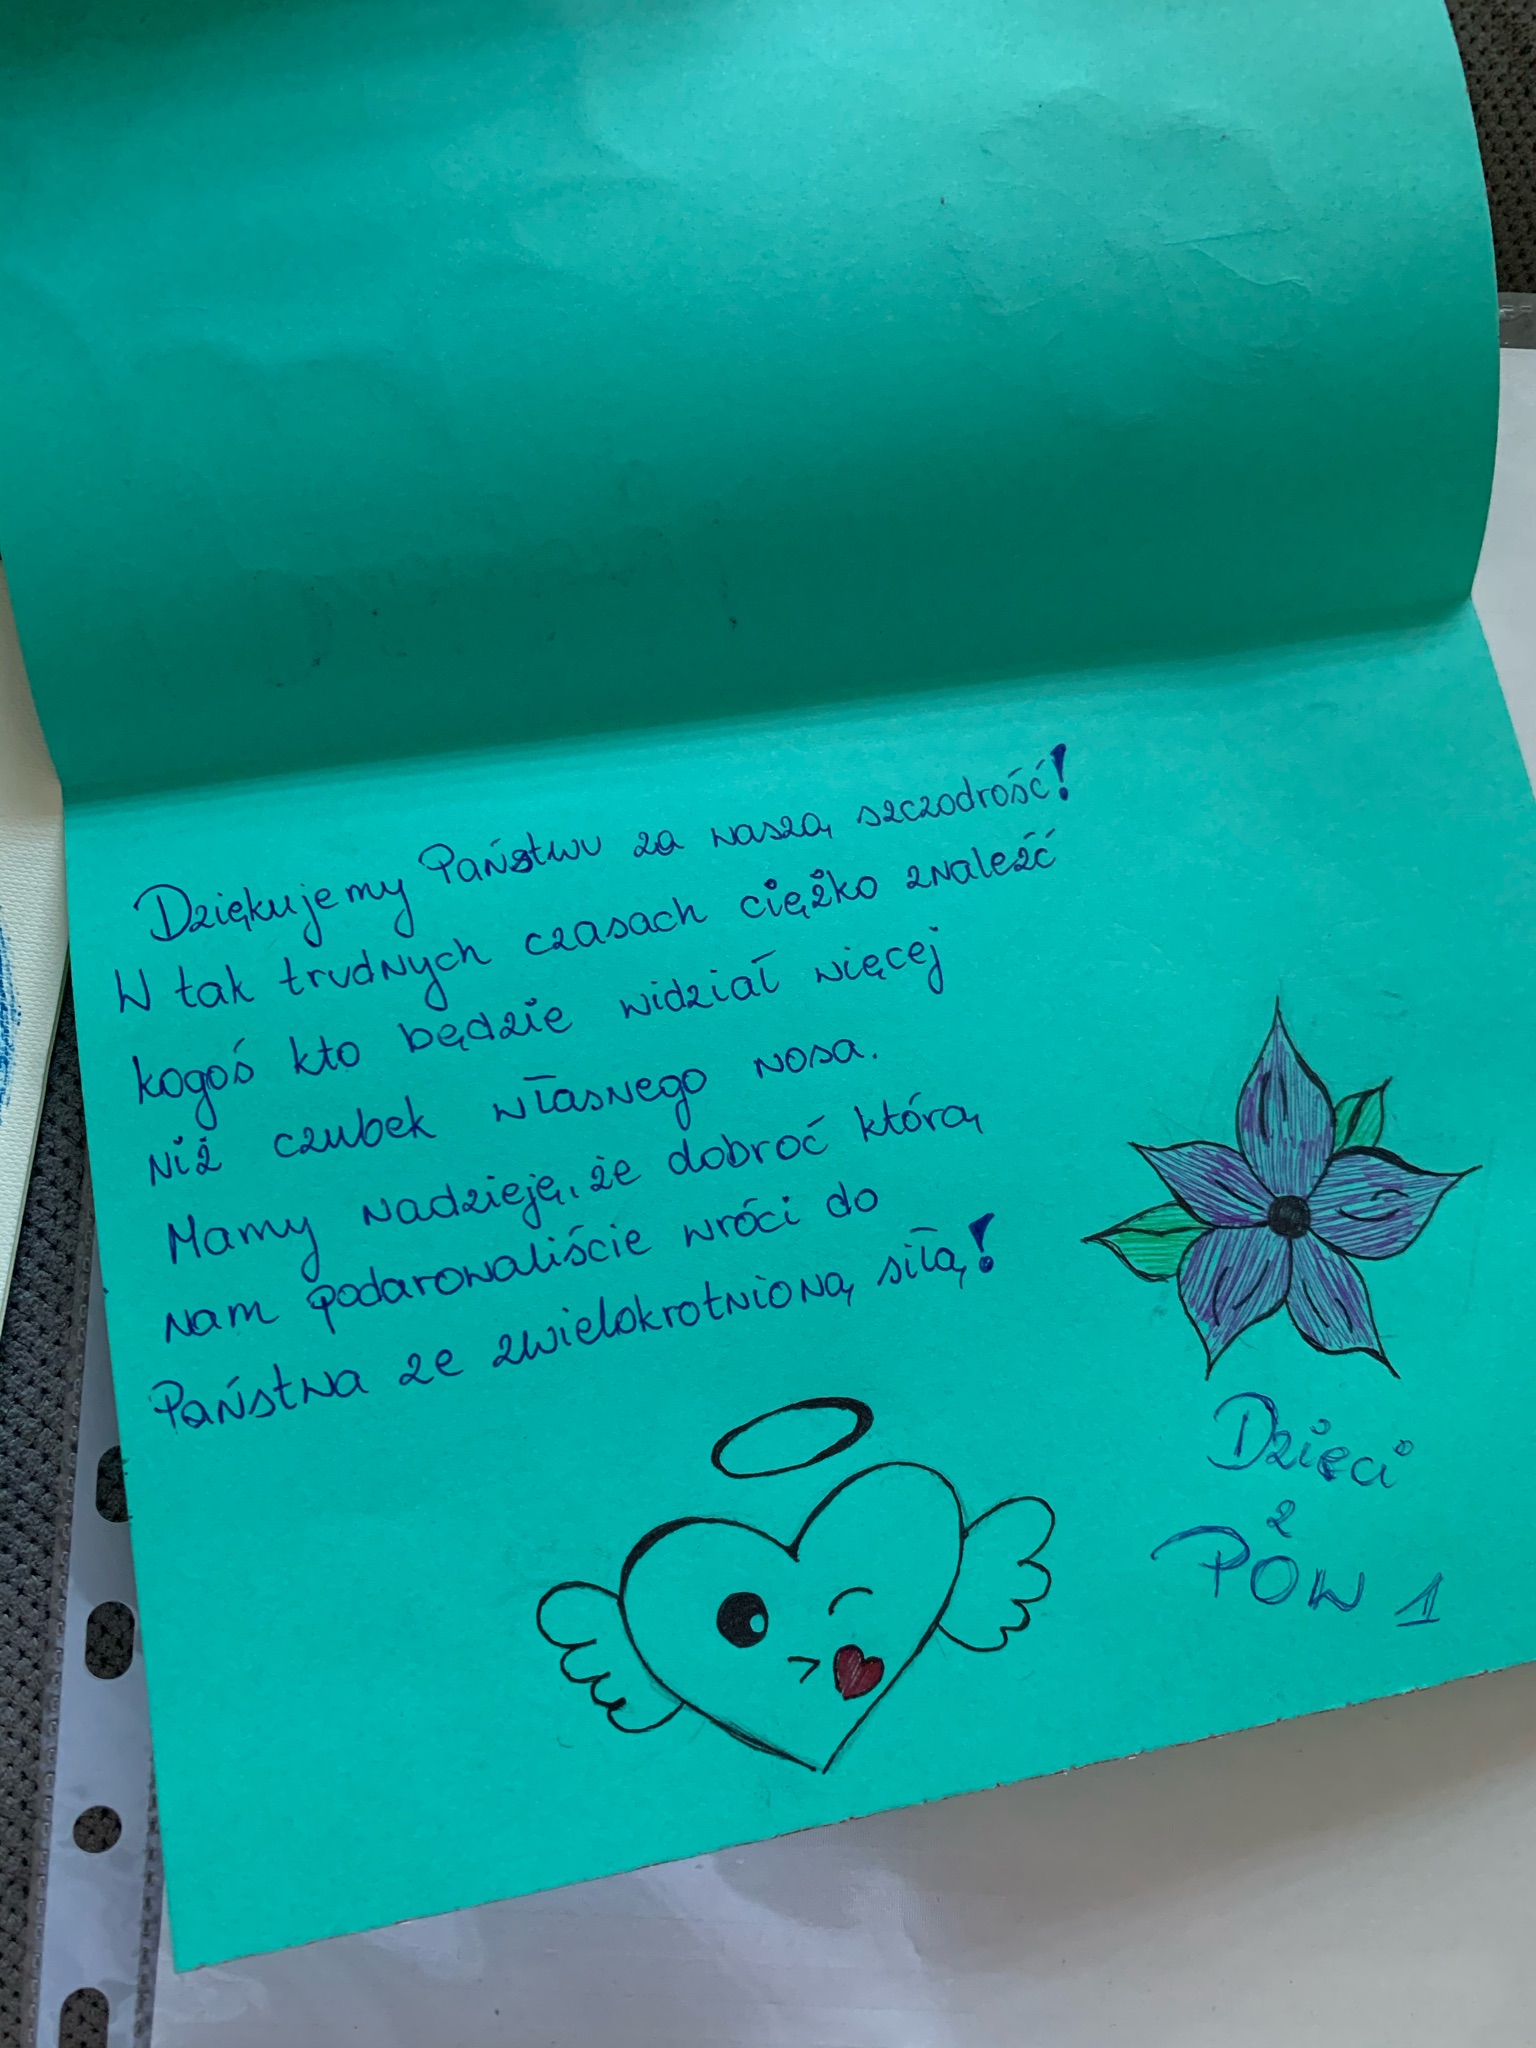 Dziękujemy Państwu za waszą szczodrość!
W tak trudnych czasach ciężko znaleźć
kogoś kto będzie widział więcej
niż czubek własnego nosa.
Mamy nadzieję, że dobroć którą
nam podarowaliście wróci do
Państwa ze zwielokrotnioną siłą!
Dzieci
z
POW 1